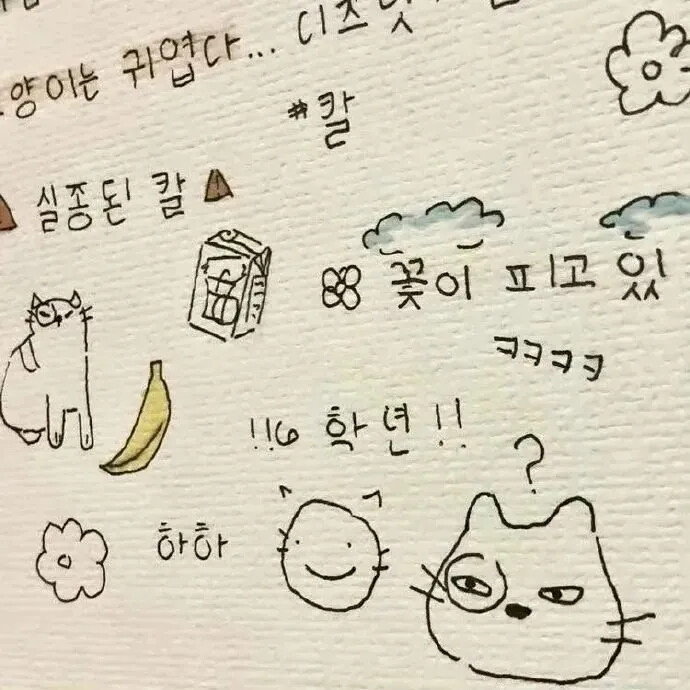 디즈
양이는 귀엽다...
#칼
실종된 칼
꽃이 피고 있
ㅋㅋㅋㅋ
!!6 학년!!
?
하하